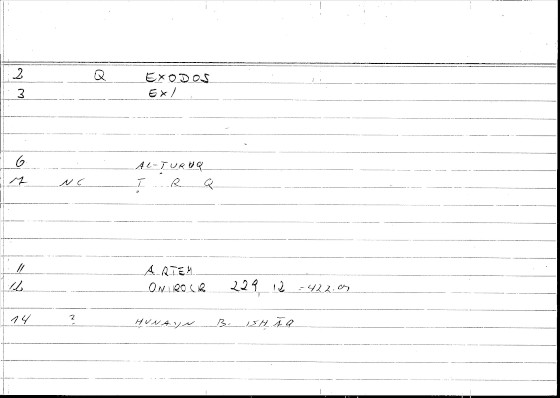 2 Q EXODOS
3 EX/
6 AL-ṬURUQ
NC Ṭ R Q
11 A.RTEM
ONIROCR 229, 12 = 422.
14 ? HUNAYN B. ISHĀQ